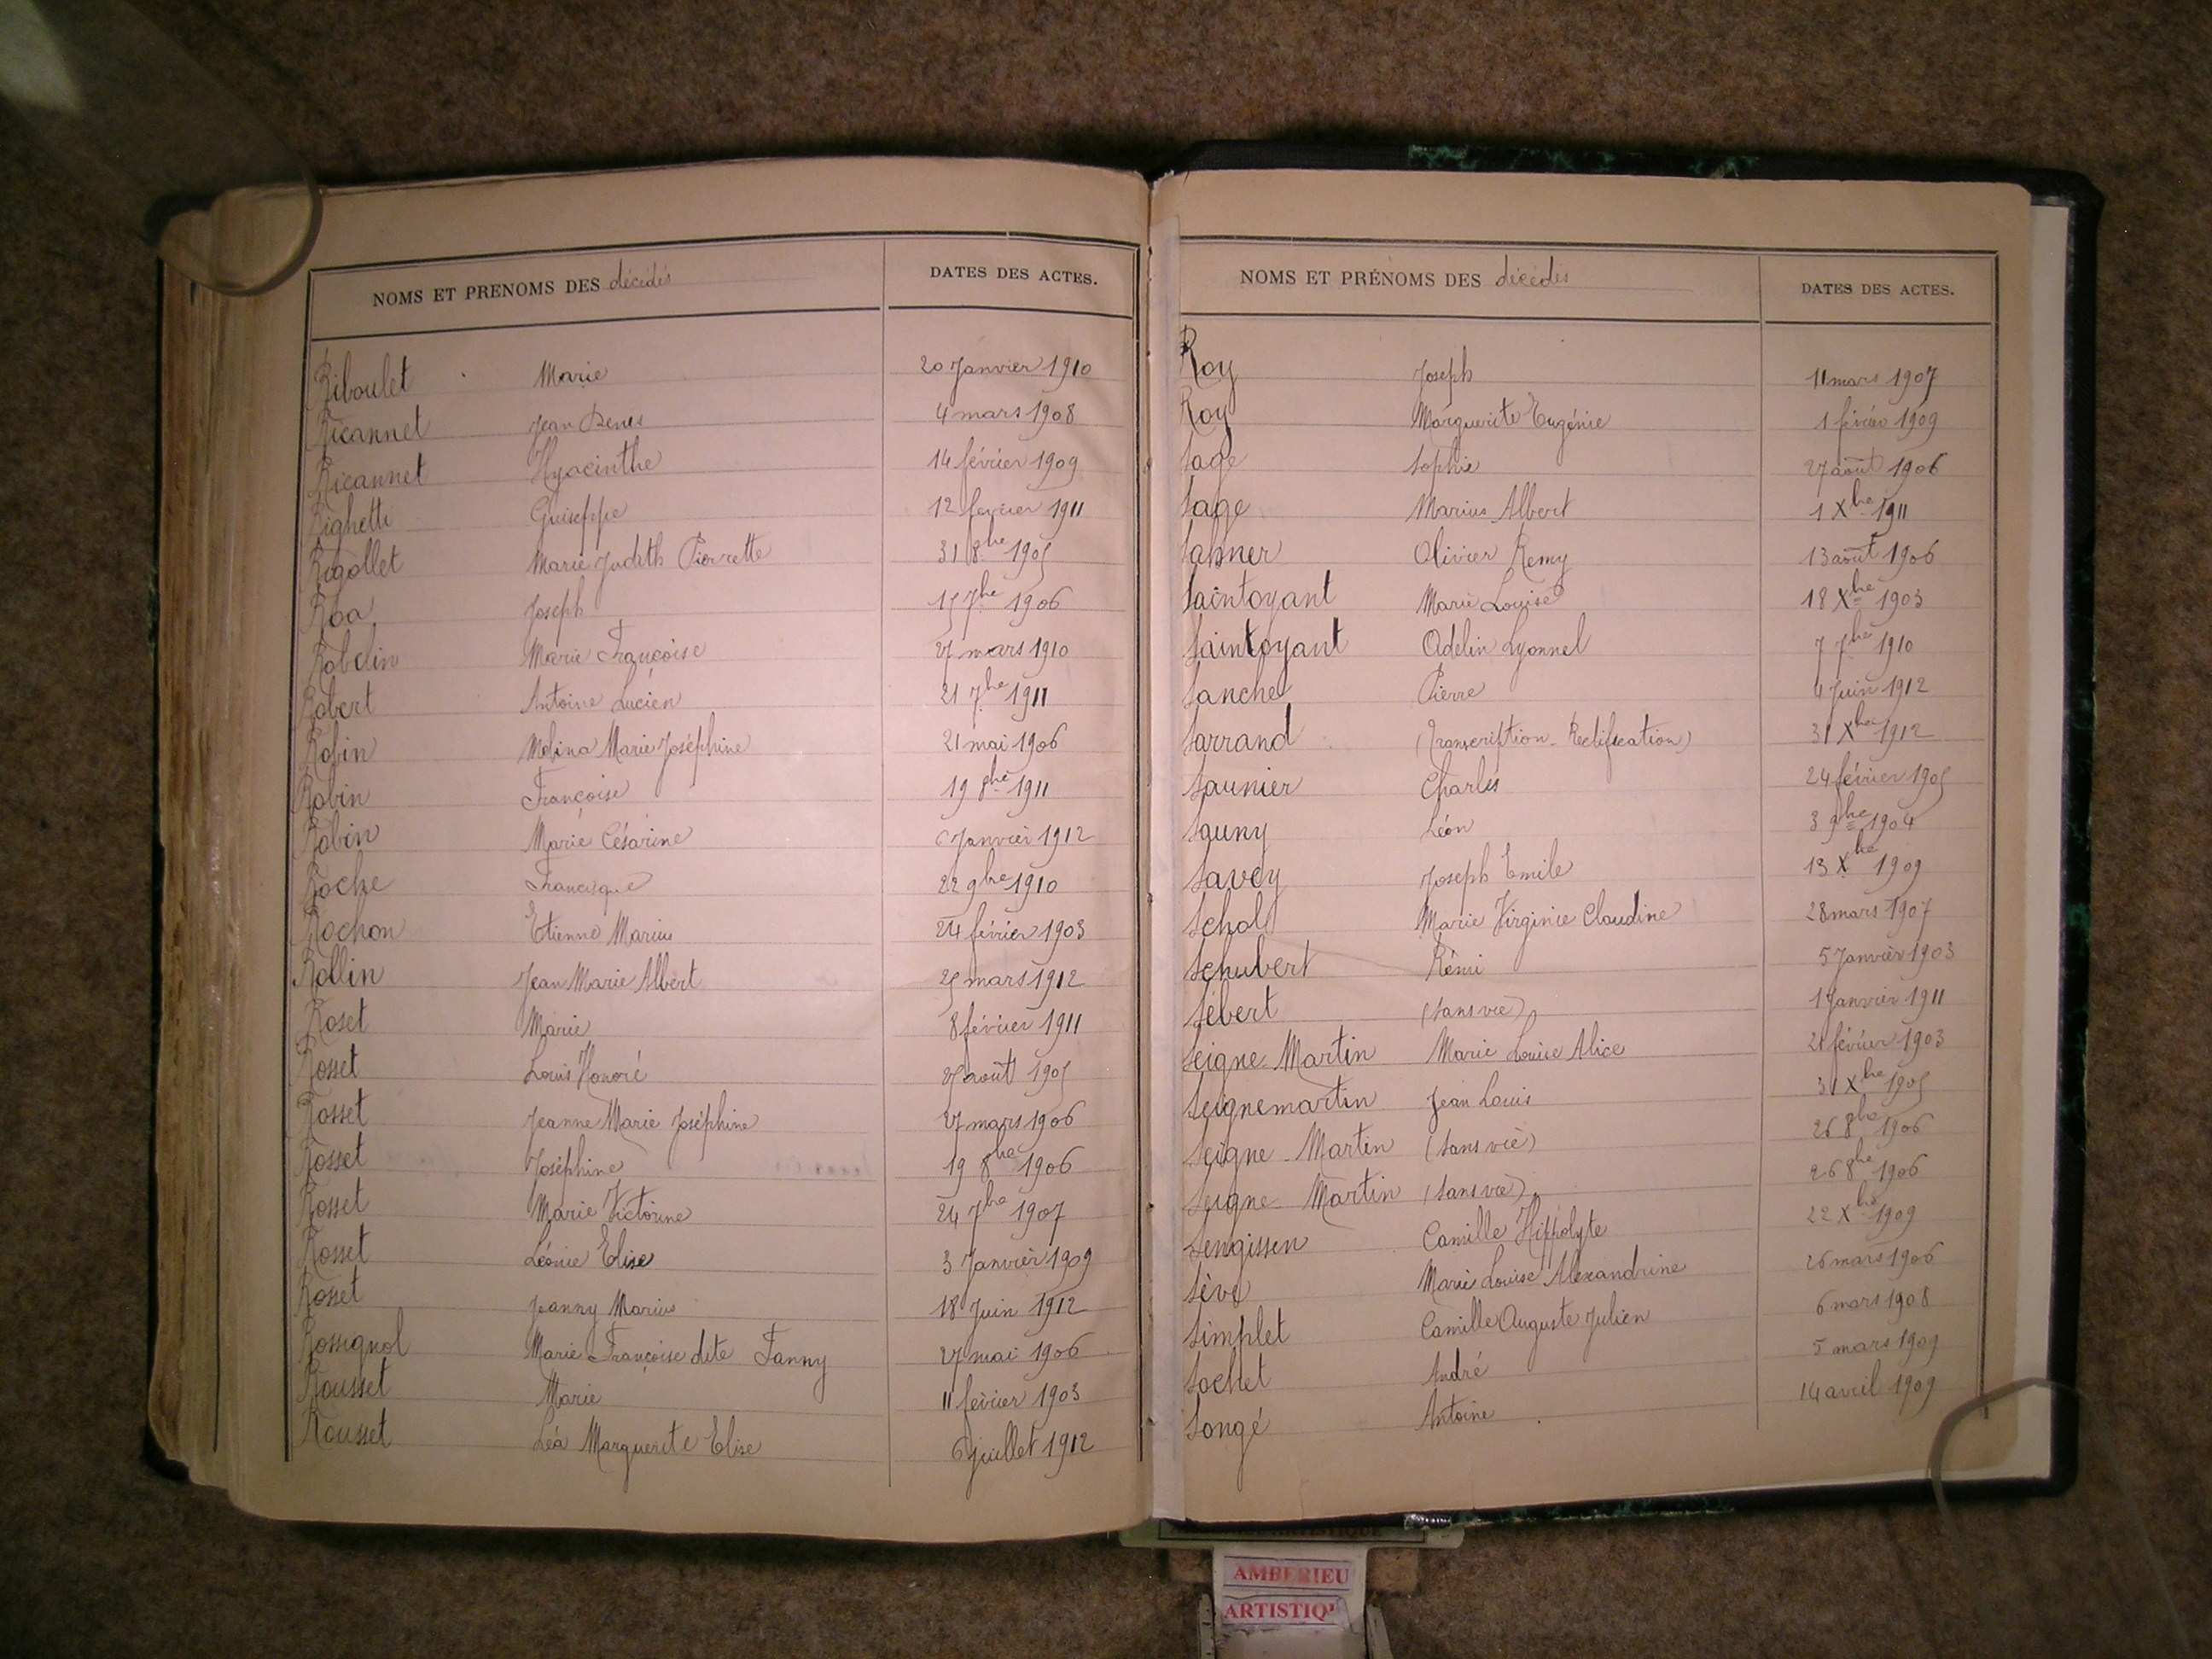 NOMS ET PRENOMS DES décédés DATES DES ACTES.
Riboulet Marie 20 Janvier 1910
Ricannet Jean Denis 4 mars 1908
Ricannet Hyacinthe 14 février 1909
Righetti Guiseppe 12 fevrier 1911
Rigollet Marie Judith Pierrette 31 8bre 1905
Roa Joseph 15 7bre 1906
Robelin Marie Françoise 27 mars 1910
Robert Antoine Lucien 21 7bre 1911
Robin Marie Joséphine 21 mai 1906
Robin Françoise 19 8bre 1911
Robin Marie Césarine 6 Janvier 1912
Roche Francisque 22 9bre 1910
Rochon Etienne Marius 24 février 1903
Rollin Jean Marie Albert 25 mars 1912
Roset Marie 8 février 1911
Rosset Louis Honoré août 1905
Rosset Jeanne Marie Joséphine 27 mars 1906
Rosset Joséphine 19 8bre 1906
Rosset Marie Victorine 24 7bre 1907
Rosset Léonie Elise 3 Janvier 1909
Rosset Jeanny Marius 18 Juin 1912
Rossignol Marie Françoise dite Fanny 27 mai 1906
Rousset Marie 11 fevrier 1903
Rousset Léa Marguerite Elise 6 juillet 1912
NOMS ET PRÉNOMS DES décédés DATES DES ACTES.
Roy Joseph 11 mars 1907
Roy Marguerite Eugénie 1 février 1909
Sage Sophie 27 août 1906
Sage Marius Albert 1 Xbre 1911
Sahner Olivier Remy 13 août 1906
Saintoyant Marie Louise 18 Xbre 1903
Saintoyant Adelin Lyonnel 7 7bre 1910
Sanche Pierre 4 Juin 1912
Sarrand (Transcription - Rectification) 31 Xbre 1912
Saunier Charles 24 février 1905
Sauny Léon 3 9bre 1904
Savey Joseph Emile 13 Xbre 1909
Schol Marie Virginie Claudine 28 mars 1907
Schubert Rémi 5 Janvier 1903
Sébert (sans vie) 1 Janvier 1911
Seigne-Martin Marie Louise Alice 21 février 1903
Seignemartin Jean Louis 31 Xbre 1905
Seigne-Martin (sans vie) 26 8bre 1906
Seigne-Martin (sans vie) 26 8bre 1906
Sengissen Camille Hippolyte 22 Xbre 1909
Sève Marie Louise Alexandrine 26 mars 1906
Simplet Camille Auguste Julien 6 mars 1908
Sochet André 5 mars 1909
Songé Antoine 14 avril 1909
AMBERIEU
ARTISTIQU